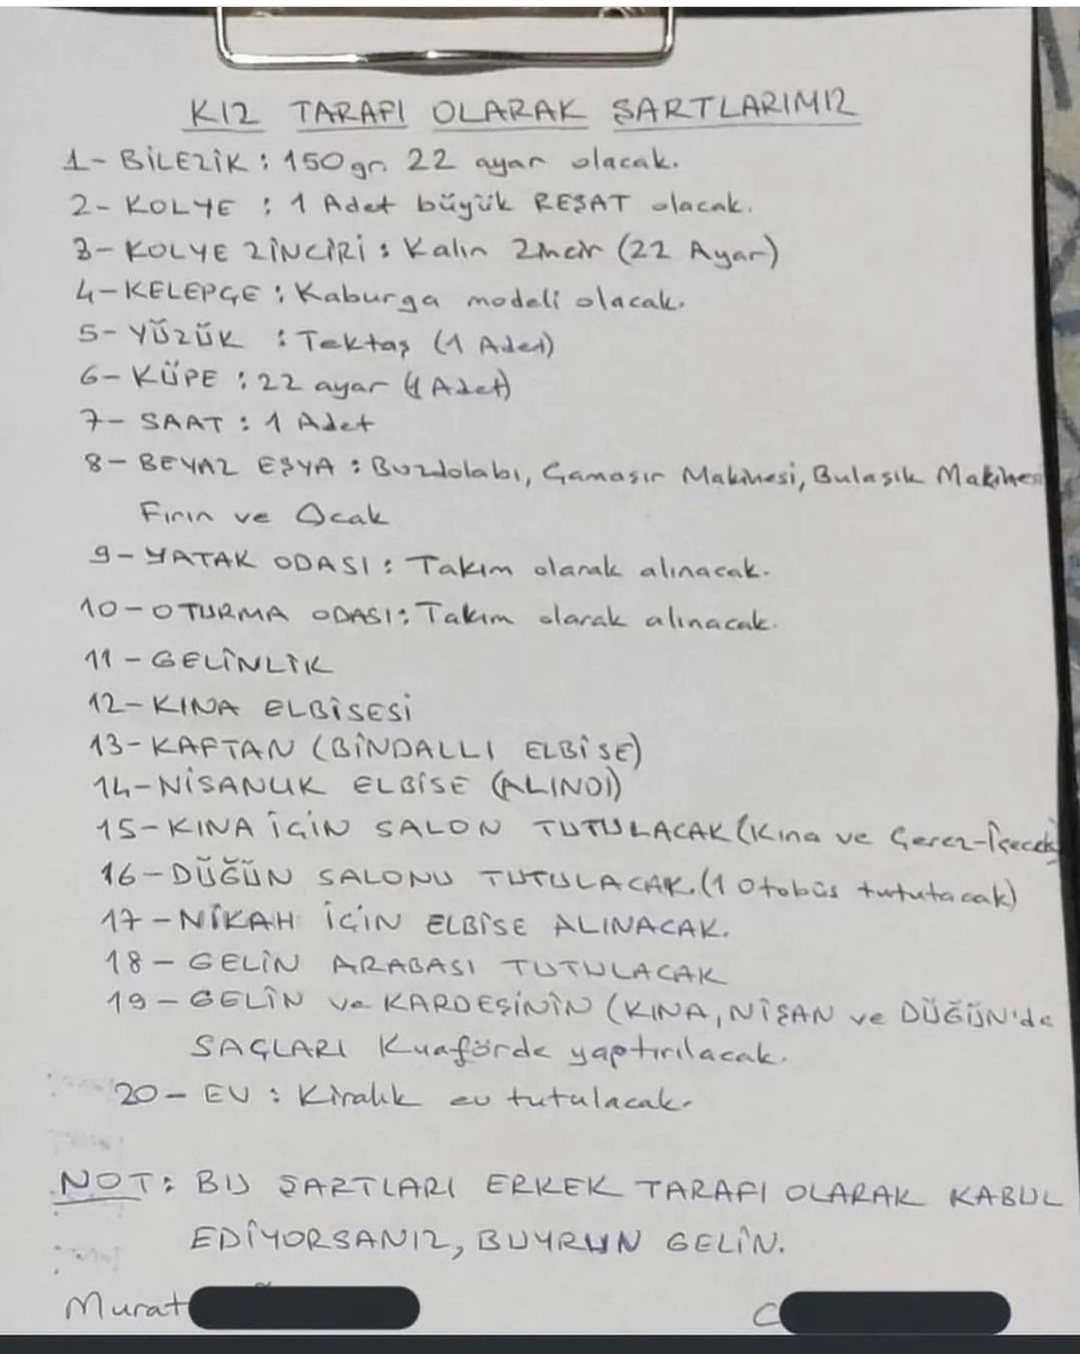 KIZ TARAFI OLARAK ŞARTLARIMIZ
1- BİLEZİK : 150 gr. 22 ayar olacak.
2- KOLYE : 1 Adet büyük REŞAT olacak.
3- KOLYE ZİNCİRİ : Kalın Zincir (22 Ayar)
4- KELEPÇE : Kaburga modeli olacak.
5- YÜZÜK : Tektaş (1 Adet)
6- KÜPE : 22 ayar (1 Adet)
7- SAAT : 1 Adet
8- BEYAZ EŞYA : Buzdolabı, Çamaşır Makinesi, Bulaşık Makines
Fırın ve Ocak
9- YATAK ODASI : Takım olarak alınacak.
10- OTURMA ODASI : Takım olarak alınacak.
11- GELİNLİK
12- KINA ELBİSESİ
13- KAFTAN (BİNDALLI ELBİSE)
14- NİŞANLIK ELBİSE (ALINDI)
15- KINA İÇİN SALON TUTULACAK (Kına ve Çerez-İçecek)
16- DÜĞÜN SALONU TUTULACAK. (1 Otobüs tututacak)
17- NİKAH İÇİN ELBİSE ALINACAK.
18- GELİN ARABASI TUTULACAK
19- GELİN ve KARDEŞİNİN (KINA, NİŞAN ve DÜĞÜN'de
SAÇLARI Kuaförde yaptırılacak.
20- EV : Kiralık ev tutulacak.
NOT : BU ŞARTLARI ERKEK TARAFI OLARAK KABUL
EDİYORSANIZ, BUYRUN GELİN.
Murat C